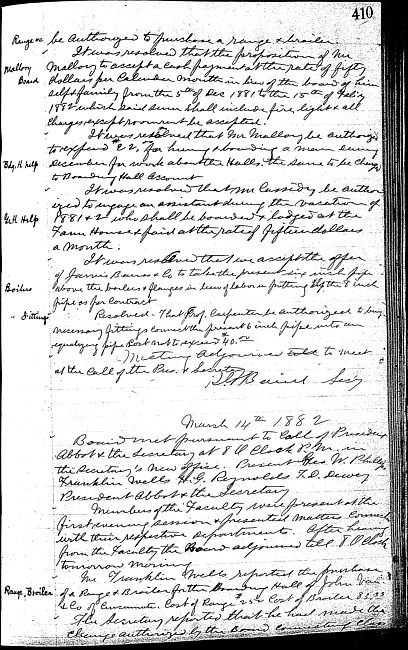 410
Range &c be Authorized to purchase a range & broiler.
It was resolved that the proposition of Mr
Mallory Board Mallory to accept a cash payment at the rate of fifty
dollars per Calendar Month in lieu of the board of him
self & family from the 5th of Dec 1881 to the 15th of Feb'y
1882 which said sum shall include fire, light & all
charges except room rent be accepted.
It was resolved that Mr Mallory be authorized
to expend $22, for hiring & boarding a man during
Bdg. H. help December for work about the Halls, the same to be charged
to Boarding Hall Account
It was resolved that Mr Cassidy be author
ized to engage an assistant during the vacation of
G.H. Help 1881 & 2 who shall be boarded & lodged at the
Farm House & paid at the rate of fifteen dollars
a month.
It was resolved that we accept the offer
of Jarvis Barnes & Co to take the present six inch pipe
Boilers above the boilers & flanges in lieu of labor in putting up the 8 inch
pipe as per Contract
" Fittings Resolved - That Prof. Carpenter be authorized to buy
necessary fittings connect the present 6 inch pipe into an
equalizing pipe Cost not to exceed $40.00
Meeting adjourned to meet
at the Call of the Pres. & Secretary
Baird Secy
March 14th 1882
Board met pursuant to Call of President
Abbot & the Secretary at 8 O Clock P.M. in
the Secretary's New Office. Present Geo W. Phillips
Franklin Wells H.G. Reynolds F.D. Dewey
President Abbot & the Secretary
Members of the Faculty were present at the
first evening session & presented matters connected
with their respective Departments. After hearing
from the Faculty the Board adjourned till 8 O Clock
tomorrow morning
Mr Franklin Wells reported the purchase
Range, Broiler of a Range & Broiler for the Boarding Hall of John Van
& Co of Cincinnati. Cost of Range Cost of Broiler
The Secretary reported that he had made the
change authorized by the Board